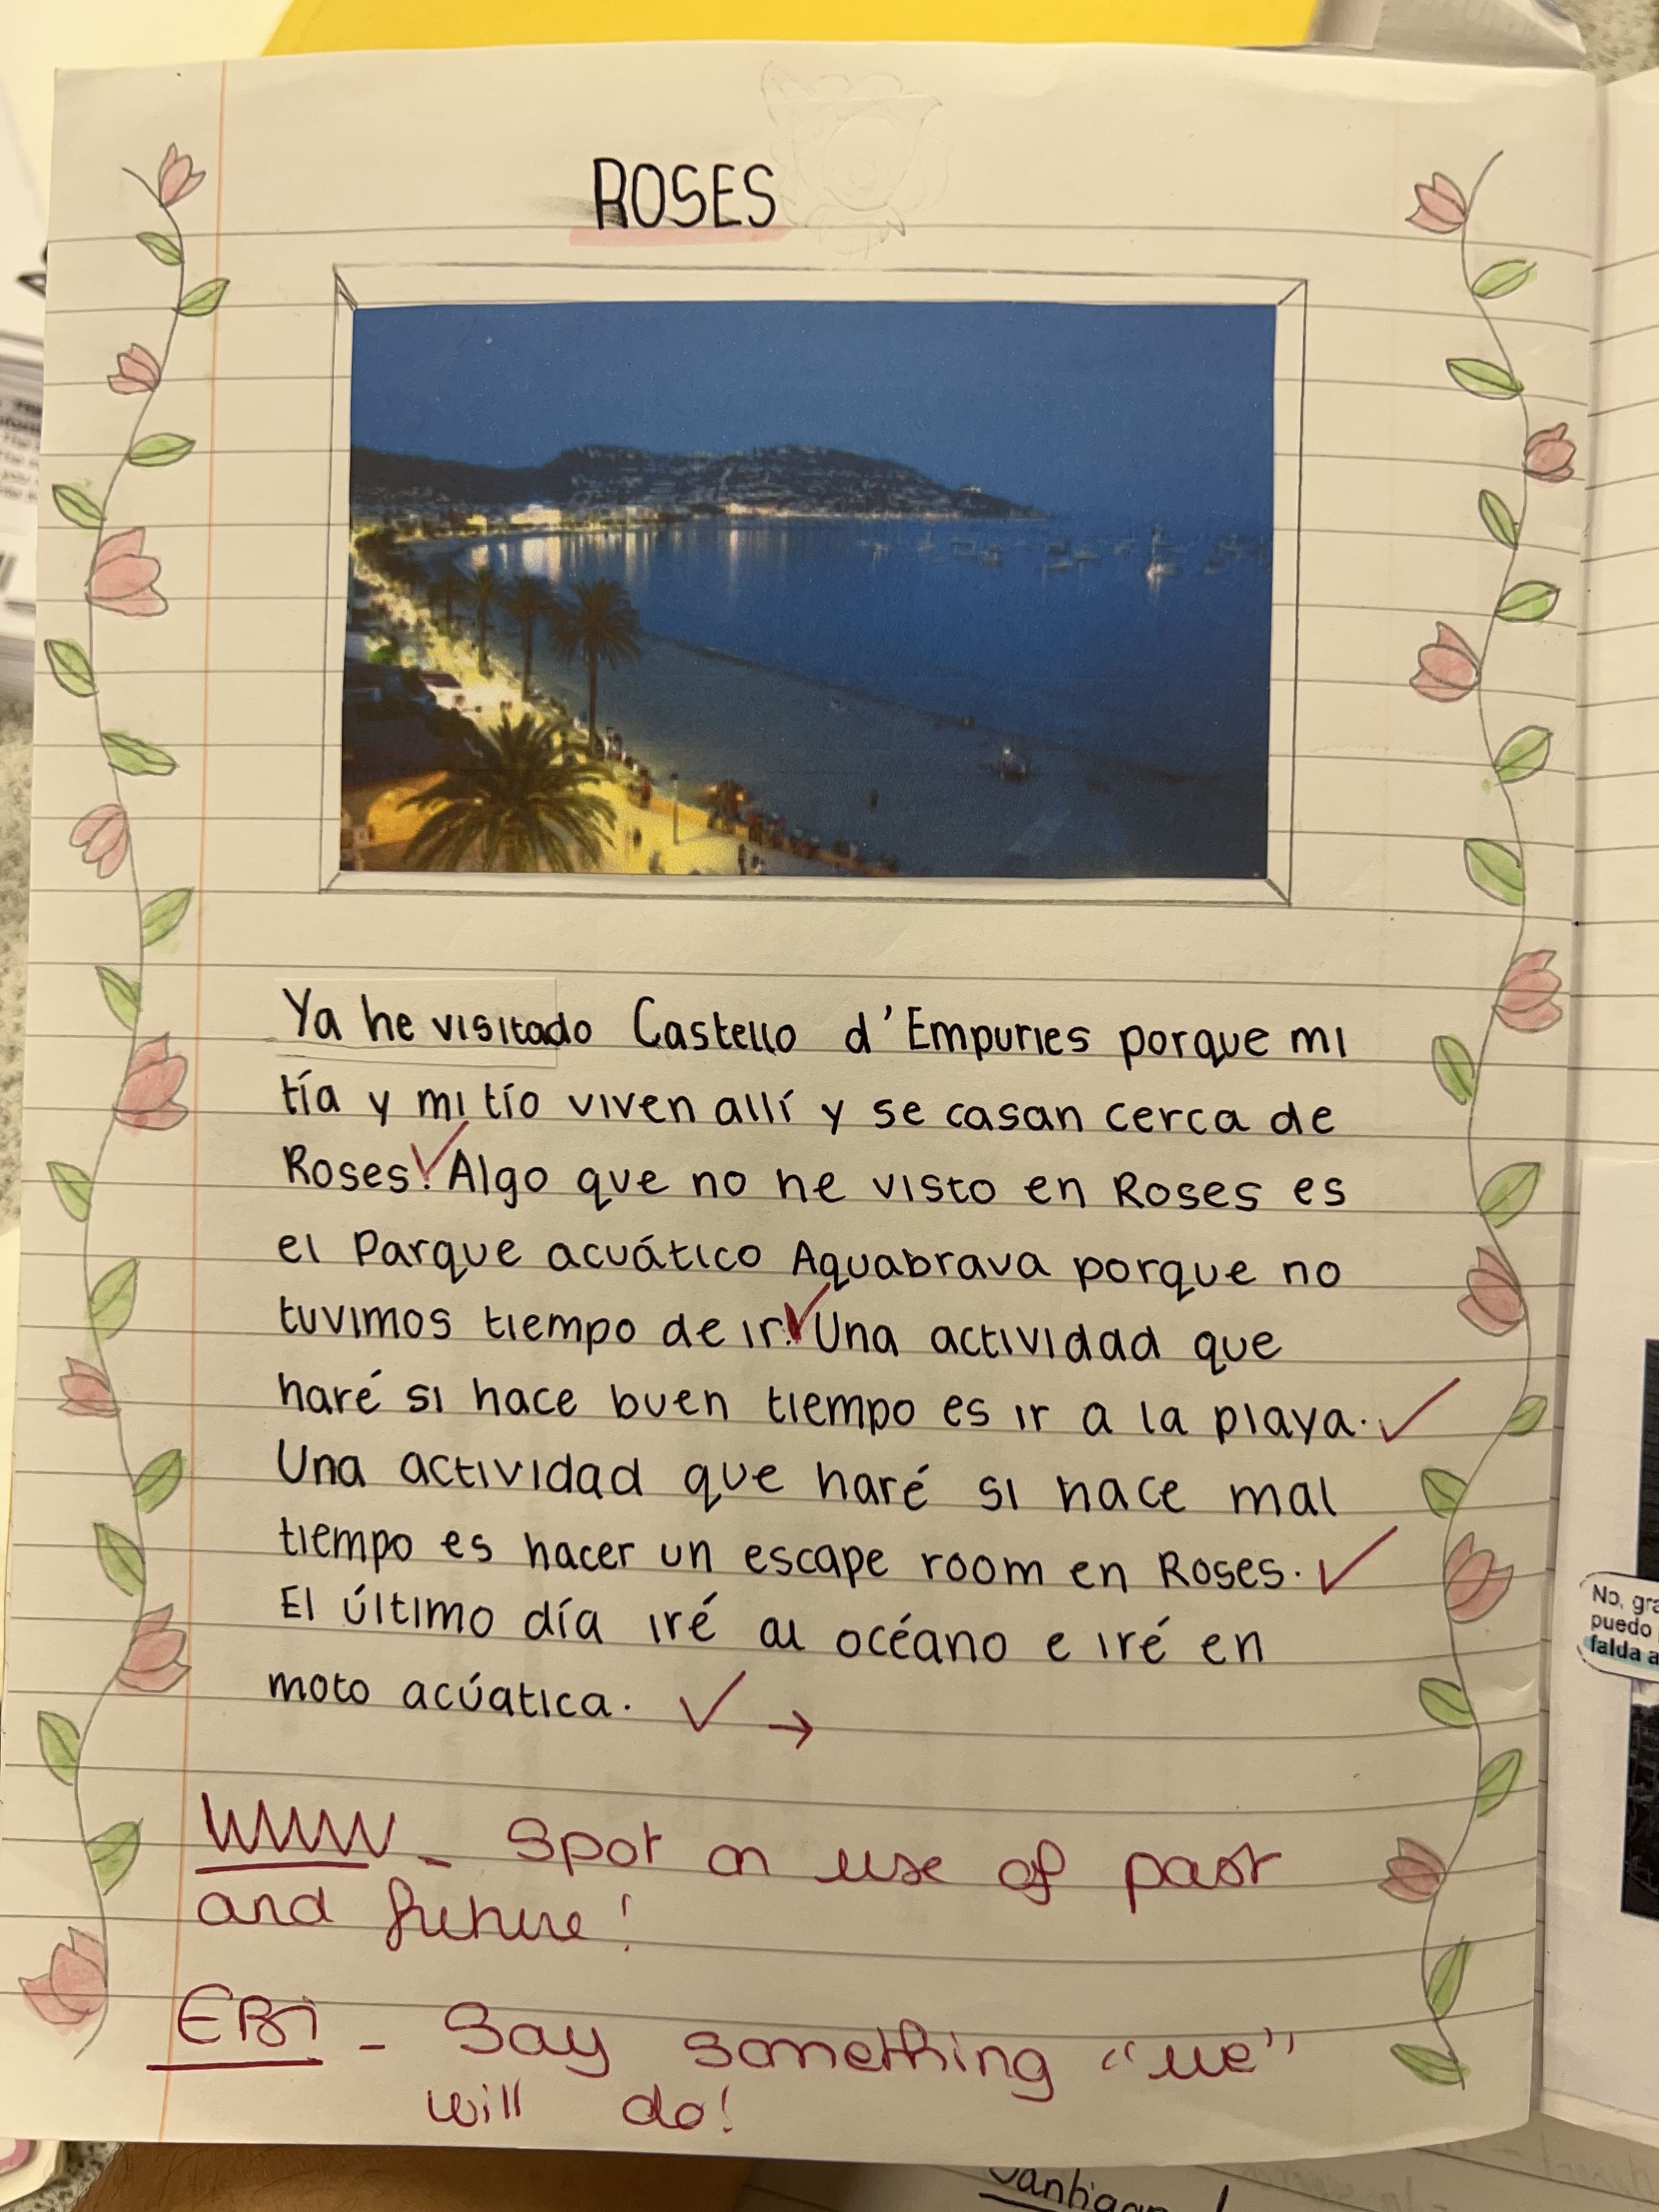 ROSES
Ya he visitado Castello d'Empuries porque mi
tía y mi tío viven allí y se casan cerca de
Roses. Algo que no he visto en Roses es
el Parque acuático Aquabrava porque no
tuvimos tiempo de ir. Una actividad que
haré si hace buen tiempo es ir a la playa.
Una actividad que haré si hace mal
tiempo es hacer un escape room en Roses.
El último día iré al océano e iré en
moto acúatica. →
WWW - Spot on use of past
and future!
EBI - Say something "we"
will do!
No, gra
puedo
falda a